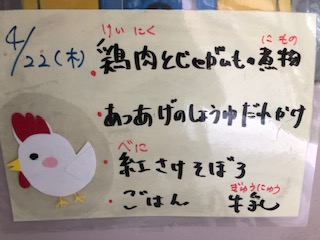 4/22(木)
けいにく にもの
・鶏肉とじゃがいもの煮物
・あつあげのしょうゆだれかけ
べに
・紅さけそぼろ
ぎゅうにゅう
・ごはん 牛乳